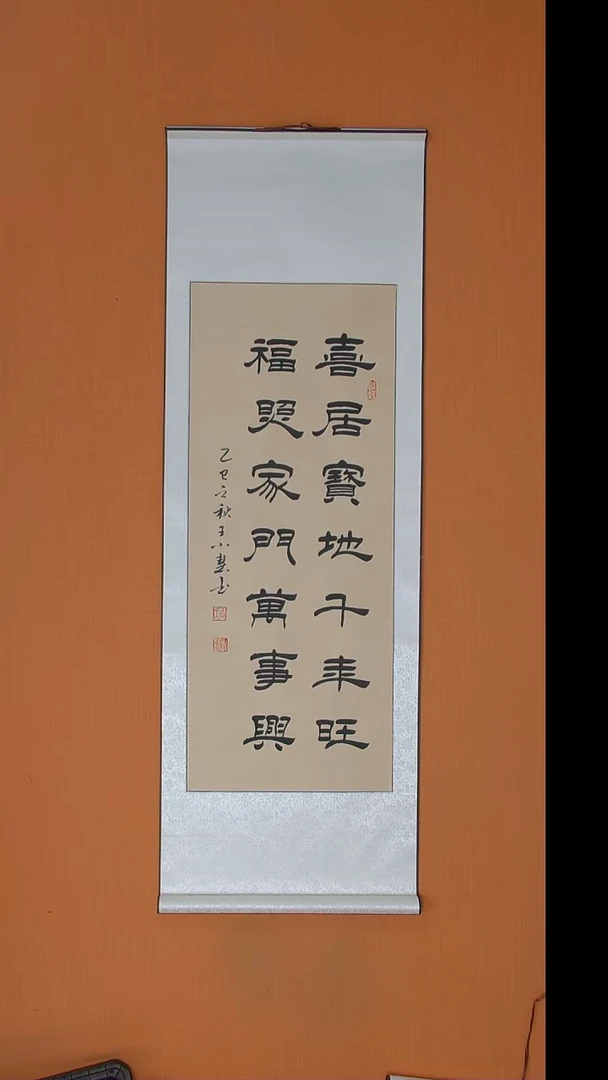 喜居寶地千年旺
福照家門萬事興
乙巳立秋王小春书